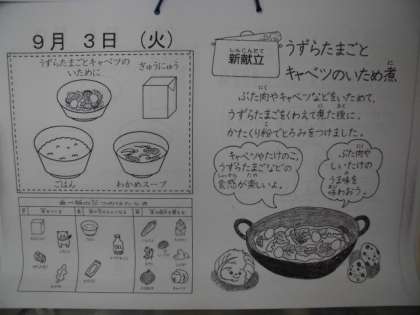 9月 3日 (火)
うずらたまごとキャベツの
いために
ぎゅうにゅう
ごはん
わかめスープ
しんこんだて
新献立
うずらたまごと
キャベツのいため煮
ぶた肉やキャベツなどをいためて、
うずらたまごをくわえて煮た後に、
かたくり粉でとろみをつけました。
キャベツやたけのこ、
うずらたまごなどの
食感が楽しいよ。
ぶた肉や
しいたけの
うま味を
味わおう。